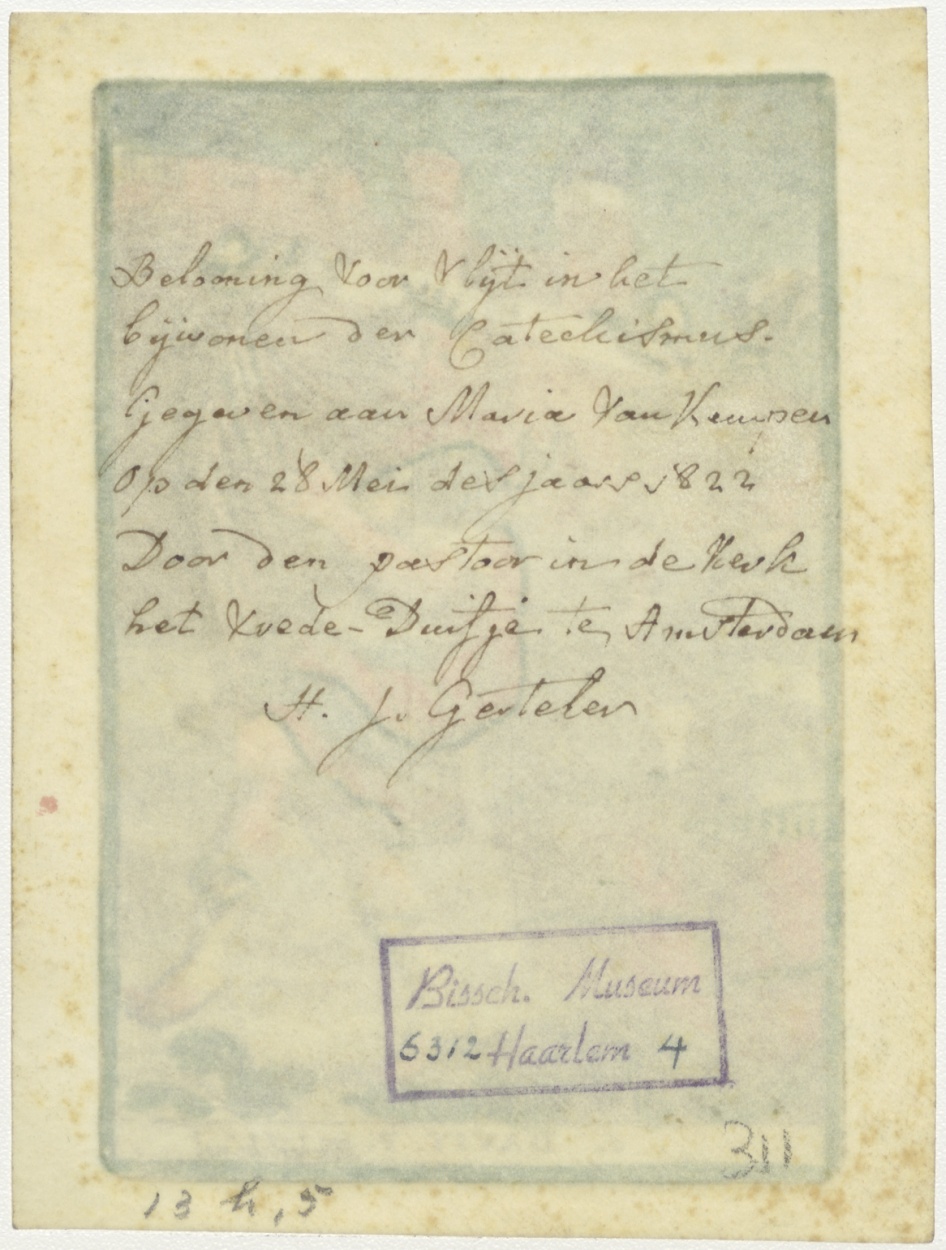 Belooning voor Vlijt in het
bijwonen der Catechismus.
Gegeven aan Maria Van Kempen
Op den 28 Mei des jaars 1822
Door den pastoor in de Kerk
het Vrede-Duifje te Amsterdam
H. J. Gerteler
Bissch. Museum
6312 Haarlem 4
311
13 h, 5